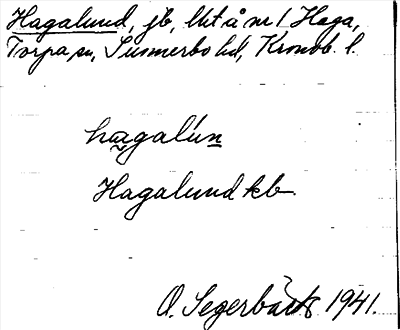 Hagalund, jb, lht å nr 1 Haga,
Torpa sn, Sunnerbo hd, Kronob. l.
hagalún
Hagalund kb
O. Segerbäck 1941.